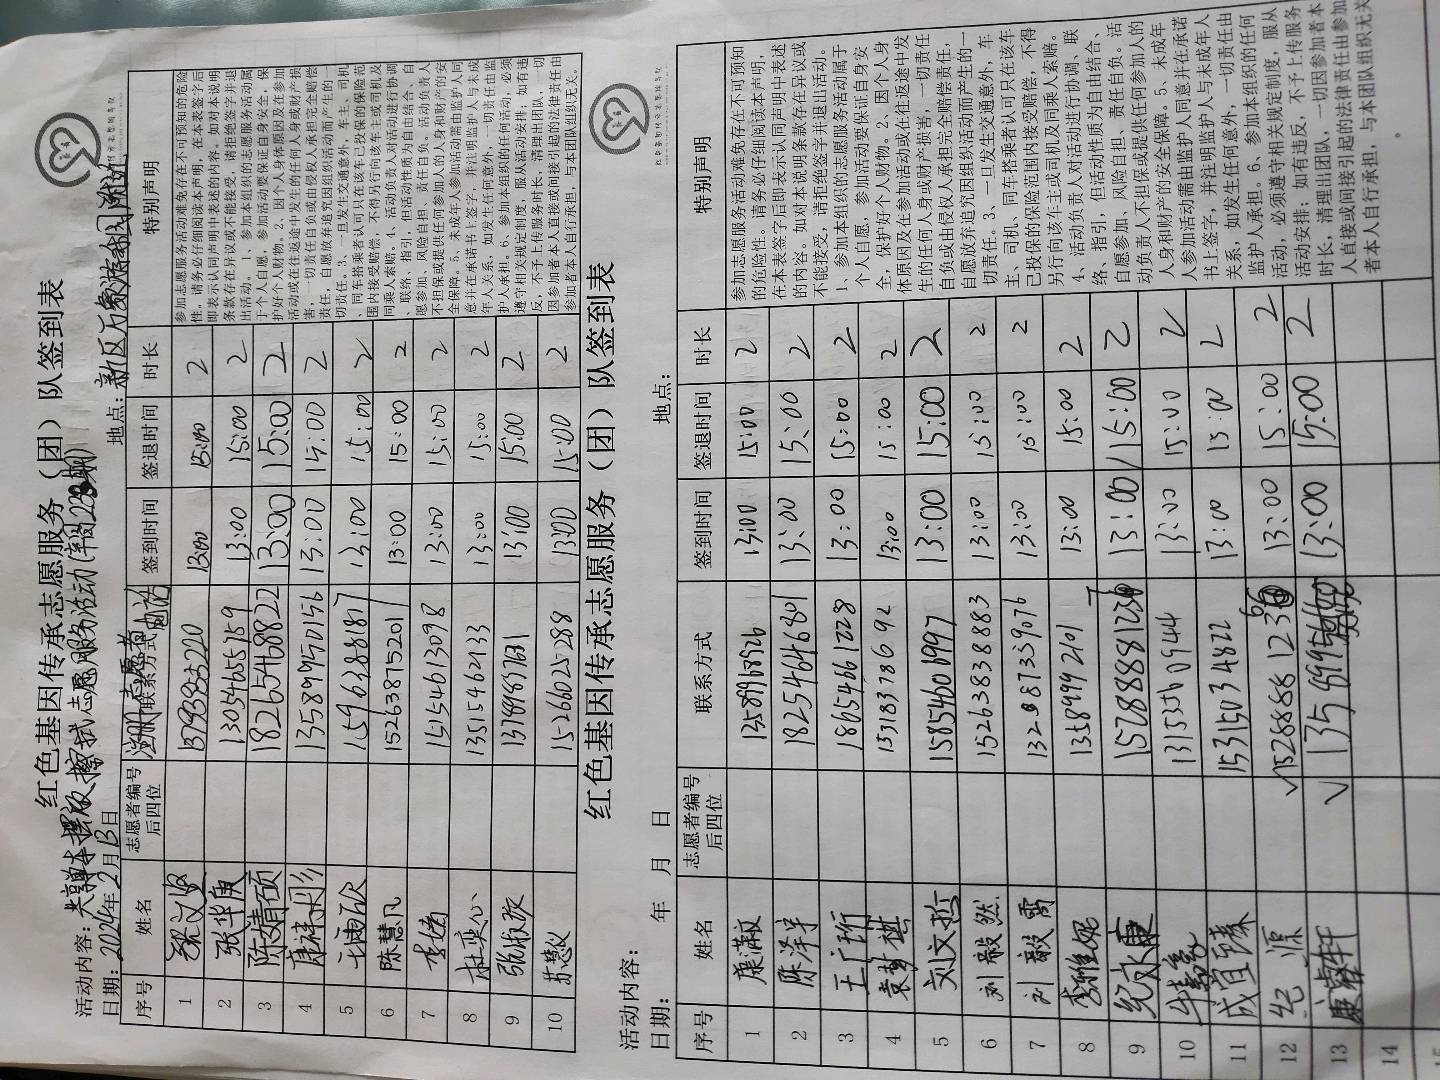 红色基因传承志愿服务（团）队签到表
活动内容：共享单车摆放、擦拭志愿服务活动
日期：2024年2月13日 地点：新区万象游乐园附近
序号 姓名 志愿者编号后四位 联系方式 签到时间 签退时间 时长 特别声明
1 13793833220 13:00 15:00 2
2 张华庚 13054655759 13:00 15:00 2
3 陈婧硕 18265468822 13:00 15:00 2
4 康祥彤 13589950156 13:00 15:00 2
5 15963888187 13:00 15:00 2
6 陈慧凡 15263875201 13:00 15:00 2
7 15154613098 13:00 15:00 2
8 杜奕心 13515462133 13:00 15:00 2
9 张淑孜 13:00 15:00 2
10 苏慧仪 15266025288 13:00 15:00 2
参加志愿服务活动难免存在不可预知的危险性。请务必仔细阅读本声明，在本表签字后即表示认同声明中表述的内容。如对本说明条款存在异议或不能接受，请拒绝签字并退出活动。
1、参加本组织的志愿服务活动属于个人自愿，参加活动要保证自身安全，保护好个人财物。2、因个人身体原因及在参加活动或在往返途中发生的任何人身或财产损害，一切责任自负或由侵权人承担完全赔偿责任，自愿放弃追究因组织活动而产生的一切责任。3、一旦发生交通意外，车主、司机、同车搭乘者认可只在该车已投保的保险范围内接受赔偿，不得另行向该车主或司机及同乘人索赔。4、活动负责人对活动进行协调、联络、指引，但活动性质为自由结合、自愿参加、风险自担、责任自负。活动负责人不担保或提供任何参加人的人身和财产的安全保障。5、未成年人参加活动需由监护人同意并在承诺书上签字，并注明监护人与未成年人关系，如发生任何意外，一切责任由监护人承担。6、参加本组织的任何活动，必须遵守相关规定制度，服从活动安排；如有违反，不予上传服务时长，清理出团队，一切因参加者本人直接或间接引起的法律责任由参加者本人自行承担，与本团队组织无关。
红色基因传承志愿服务（团）队签到表
活动内容：
日期： 年 月 日 地点：
序号 姓名 志愿者编号后四位 联系方式 签到时间 签退时间 时长 特别声明
1 康淑敏 13589968926 13:00 15:00 2
2 陈泽宇 18254646801 13:00 15:00 2
3 王广珩 18654661228 13:00 15:00 2
4 袁梦棋 15318378692 13:00 15:00 2
5 刘文哲 15854606997 13:00 15:00 2
6 刘毅然 15263838883 13:00 15:00 2
7 刘毅霄 132987359076 13:00 15:00 2
8 李雅妮 13589992101 13:00 15:00 2
9 纪永康 13:00 15:00 2
10 牛嘉豪 13153540944 13:00 15:00 2
11 成宜臻 15315034822 13:00 15:00 2
12 纪源 13:00 15:00 2
13 康睿轩 13:00 15:00 2
14
15
参加志愿服务活动难免存在不可预知的危险性。请务必仔细阅读本声明，在本表签字后即表示认同声明中表述的内容。如对本说明条款存在异议或不能接受，请拒绝签字并退出活动。
1、参加本组织的志愿服务活动属于个人自愿，参加活动要保证自身安全，保护好个人财物。2、因个人身体原因及在参加活动或在往返途中发生的任何人身或财产损害，一切责任自负或由侵权人承担完全赔偿责任，自愿放弃追究因组织活动而产生的一切责任。3、一旦发生交通意外，车主、司机、同车搭乘者认可只在该车已投保的保险范围内接受赔偿，不得另行向该车主或司机及同乘人索赔。4、活动负责人对活动进行协调、联络、指引，但活动性质为自由结合、自愿参加、风险自担、责任自负。活动负责人不担保或提供任何参加人的人身和财产的安全保障。5、未成年人参加活动需由监护人同意并在承诺书上签字，并注明监护人与未成年人关系，如发生任何意外，一切责任由监护人承担。6、参加本组织的任何活动，必须遵守相关规定制度，服从活动安排；如有违反，不予上传服务时长，清理出团队，一切因参加者本人直接或间接引起的法律责任由参加者本人自行承担，与本团队组织无关。